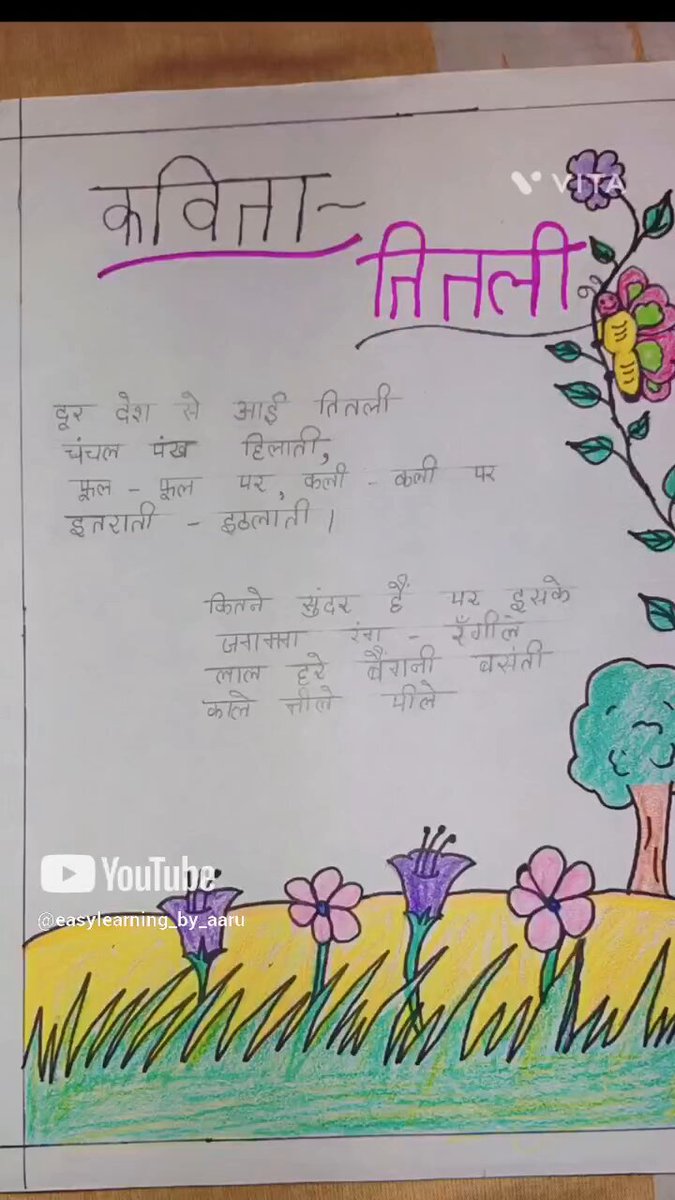 VITA
कविता-
तितली
दूर देश से आई तितली
चंचल पंख हिलाती,
फूल - फूल पर, कली - कली पर
इतराती - इठलाती।
कितने सुंदर हैं पर इसके
रंग - रँगीले
लाल हरे बैंगनी बसंती
काले नीले पीले
YouTube
@easylearning_by_aaru